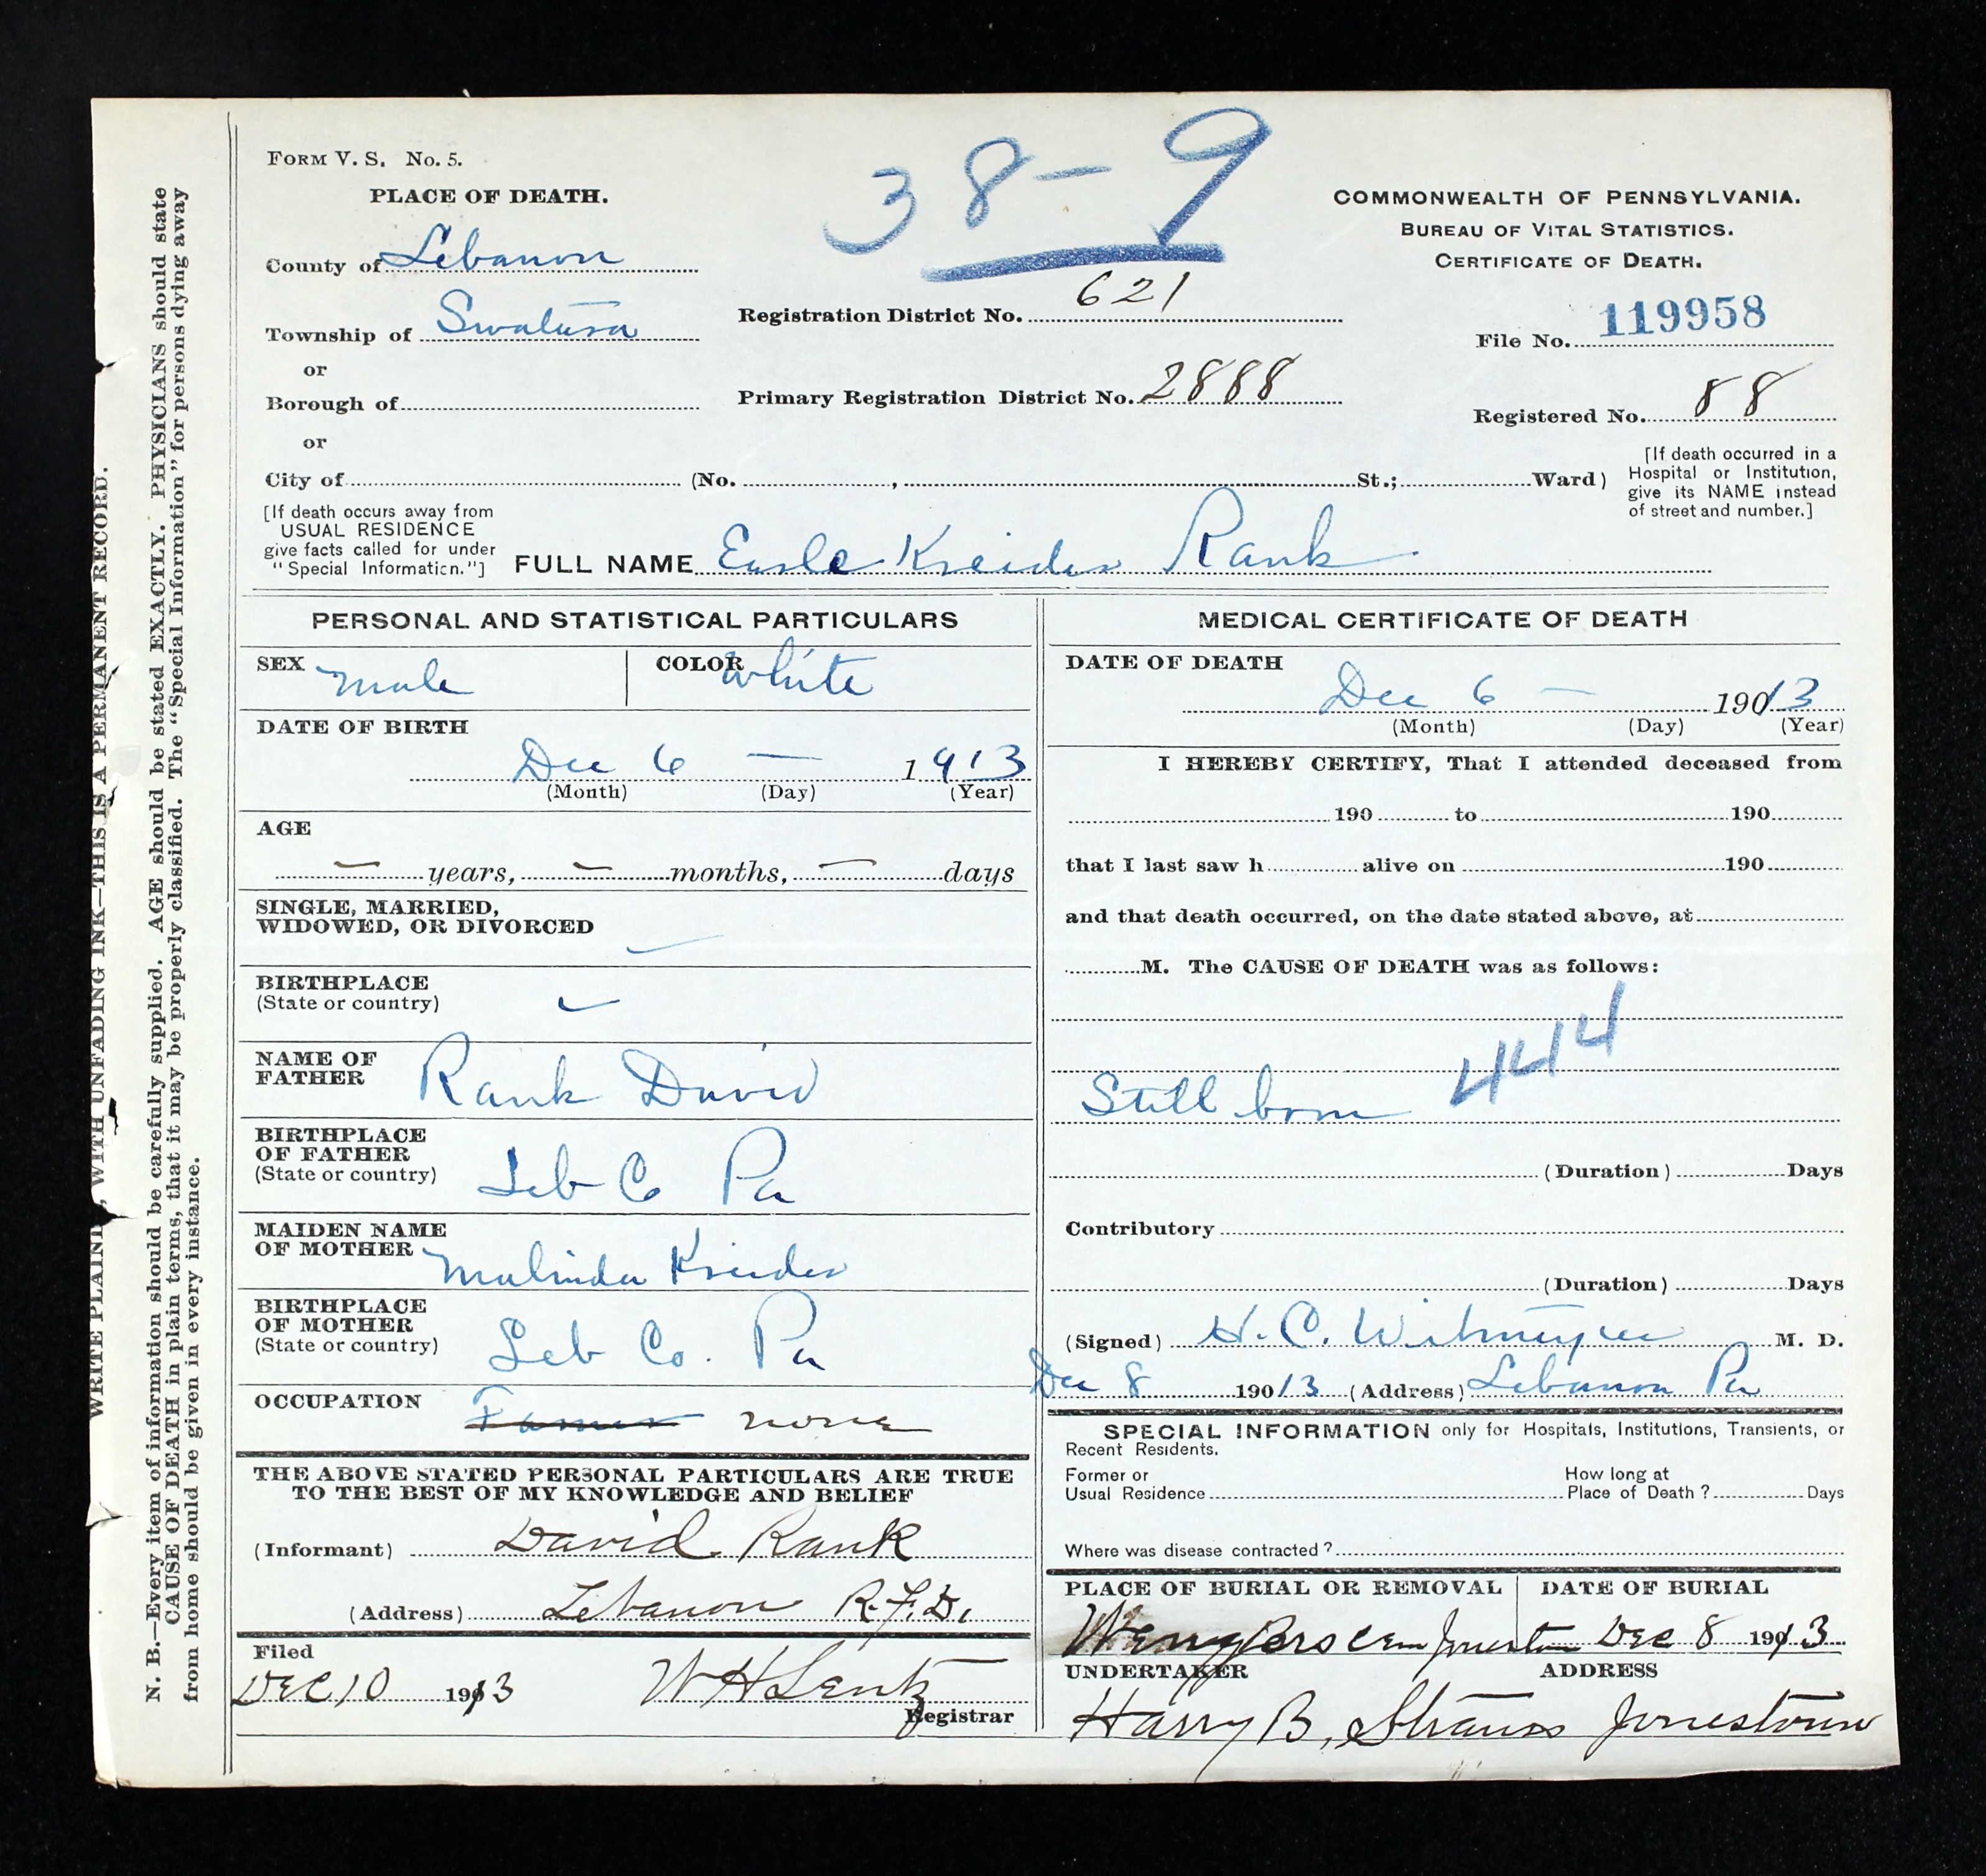 FORM V. S. No. 5.
38-9
PLACE OF DEATH.
COMMONWEALTH OF PENNSYLVANIA.
BUREAU OF VITAL STATISTICS.
CERTIFICATE OF DEATH.
County of Lebanon
Township of Swatara
or
Borough of
or
City of (No. , St.; Ward)
Registration District No. 621
Primary Registration District No. 2888
File No. 119958
Registered No. 88
[If death occurred in a
Hospital or Institution,
give its NAME instead
of street and number.]
[If death occurs away from
USUAL RESIDENCE
give facts called for under
"Special Information."]
FULL NAME Earle Kreider Rank
PERSONAL AND STATISTICAL PARTICULARS
SEX male COLOR White
DATE OF BIRTH
Dec 6 — 1913
(Month) (Day) (Year)
AGE
— years, — months, — days
SINGLE, MARRIED,
WIDOWED, OR DIVORCED
BIRTHPLACE
(State or country)
NAME OF
FATHER Rank David
BIRTHPLACE
OF FATHER
(State or country) Leb Co Pa
MAIDEN NAME
OF MOTHER Malinda Kreider
BIRTHPLACE
OF MOTHER
(State or country) Leb Co. Pa
OCCUPATION Farmer none
THE ABOVE STATED PERSONAL PARTICULARS ARE TRUE
TO THE BEST OF MY KNOWLEDGE AND BELIEF
(Informant) David Rank
(Address) Lebanon R.F.D.
Filed
Dec 10 1913 W H Lentz
Registrar
MEDICAL CERTIFICATE OF DEATH
DATE OF DEATH
Dec 6 — 19013
(Month) (Day) (Year)
I HEREBY CERTIFY, That I attended deceased from
190 to 190
that I last saw h alive on 190
and that death occurred, on the date stated above, at
M. The CAUSE OF DEATH was as follows:
444
Still born
(Duration) Days
Contributory
(Duration) Days
(Signed) H. C. Witmeyer M. D.
Dec 8 19013 (Address) Lebanon Pa
SPECIAL INFORMATION only for Hospitals, Institutions, Transients, or
Recent Residents.
Former or
Usual Residence
How long at
Place of Death? Days
Where was disease contracted?
PLACE OF BURIAL OR REMOVAL DATE OF BURIAL
Wengers Cem Jonestown Dec 8 1913
UNDERTAKER ADDRESS
Harry B. Strauss Jonestown
WRITE PLAINLY, WITH UNFADING INK—THIS IS A PERMANENT RECORD.
N. B.—Every item of information should be carefully supplied. AGE should be stated EXACTLY. PHYSICIANS should state
CAUSE OF DEATH in plain terms, that it may be properly classified. The "Special Information" for persons dying away
from home should be given in every instance.